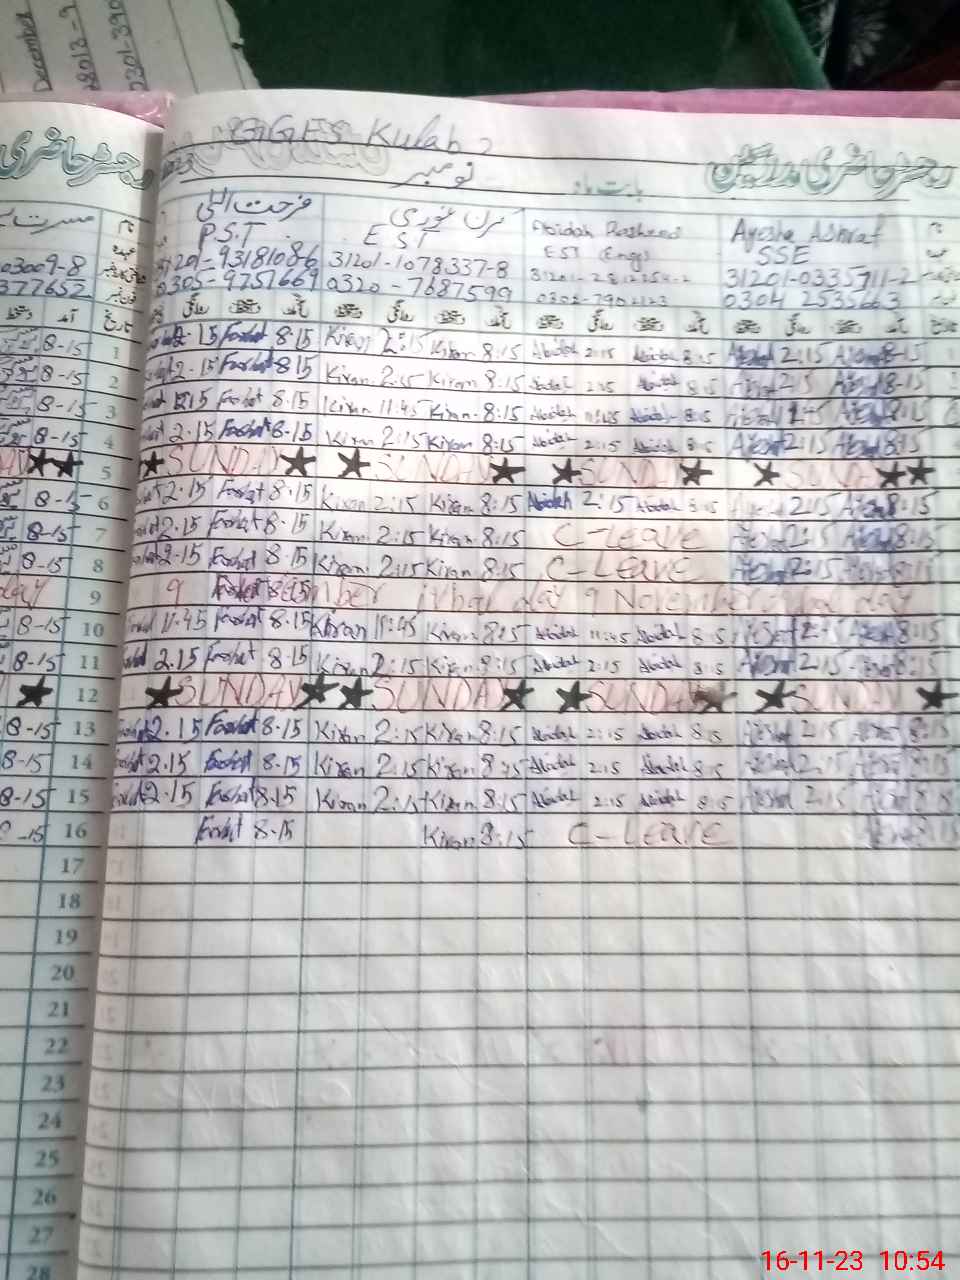 December
28013-9
0301-390
GGES Kulab
رجسٹر حاضری مدرسین
بابت ماہ
نومبر
رجسٹر حاضری
نام فرحت الٰہی کرن غوری Abidah Rasheed Ayesha Ashraf نام
عہدہ P.S.T E S T EST (Eng) SSE
03009-8 31201-9318108-6 31201-1078337-8 31201-0335711-2
377652 0305-9751669 0320-7687599 0305-7902123 0304 2535663
تاریخ آمد دستخط روانگی دستخط آمد دستخط روانگی دستخط آمد دستخط روانگی دستخط آمد دستخط تاریخ
8-15 1 2-15 Farhat 8.15 Kiran 2:15 Kiran 8:15 Abidah 2:15 Abidah 8:15 Ayesha 2:15 Ayesha 8-15
8-15 2 2-15 Farhat 8.15 Kiran 2:15 Kiran 8:15 Abidah 2:15 Abidah 8:15 Ayesha 2:15 Ayesha 8-15
8-15 3 Farhat 8.15 Kiran 11:45 Kiran 8:15 Abidah 11:45 Abidah 8:15 Ayesha Ayesha 8:15
8-15 4 2.15 Farhat 8-15 Kiran 2:15 Kiran 8:15 Abidah 2:15 Abidah 8:15 Ayesha 2:15 Ayesha 8:15
5 SUNDAY SUNDAY SUNDAY SUNDAY
8-15 6 2.15 Farhat 8.15 Kiran 2:15 Kiran 8:15 Abidah 2:15 Abidah 8:15 Ayesha 2:15 Ayesha 8:15
8-15 7 2.15 Farhat 8.15 Kiran 2:15 Kiran 8:15 C-Leave Ayesha 2:15 Ayesha 8:15
8-15 8 2-15 Farhat 8.15 Kiran 2:15 Kiran 8:15 C-Leave Ayesha 2:15 Ayesha 8:15
day 9 9 Farhat 8.15 mber iqbal day 9 November iqbal day
8-15 10 11.45 Farhat 8.15 Kiran 11:45 Kiran 8:15 Abidah 11:45 Abidah 8:15 Ayesha Ayesha 8:15
8-15 11 2.15 Farhat 8.15 Kiran 2:15 Kiran 8:15 Abidah 2:15 Abidah 8:15 Ayesha 2:15 8:15
12 SUNDAY SUNDAY SUNDAY SUNDAY
8-15 13 2.15 Farhat 8.15 Kiran 2:15 Kiran 8:15 Abidah 2:15 Abidah 8:15 Ayesha 2:15 Ayesha 8:15
8-15 14 2.15 Farhat 8.15 Kiran 2:15 Kiran 8:15 Abidah 2:15 Abidah 8:15 Ayesha 2:15 Ayesha 8:15
8-15 15 2.15 Farhat 8.15 Kiran 2:15 Kiran 8:15 Abidah 2:15 Abidah 8:15 Ayesha 2:15 Ayesha 8:15
8-15 16 Farhat 8.15 Kiran 8:15 C-Leave Ayesha 8:15
17
18
19
20
21
22
23
24
25
26
27
28
16-11-23 10:54